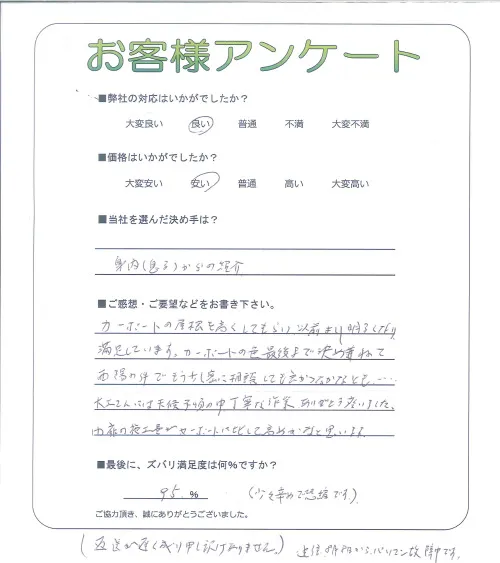 お客様アンケート
■弊社の対応はいかがでしたか？
大変良い 良い 普通 不満 大変不満
■価格はいかがでしたか？
大変安い 安い 普通 高い 大変高い
■当社を選んだ決め手は？
身内(息子)からの紹介
■ご感想・ご要望などをお書き下さい。
カーポートの屋根を高くしてもらい以前より明るくなり
満足しています。カーポートの色最後まで決め兼ねて
の件でもう少し息に相談しても良かったかなとも....
大工さんには天候不順の中丁寧な作業ありがとう座いました。
の施工量がカーポートに比して高めかなと思います
■最後に、ズバリ満足度は何%ですか？
95 % (少々辛めで恐縮です)
ご協力頂き、誠にありがとうございました。
(返送が遅く成り申し訳けありません。) 月からパソコン故障中です。